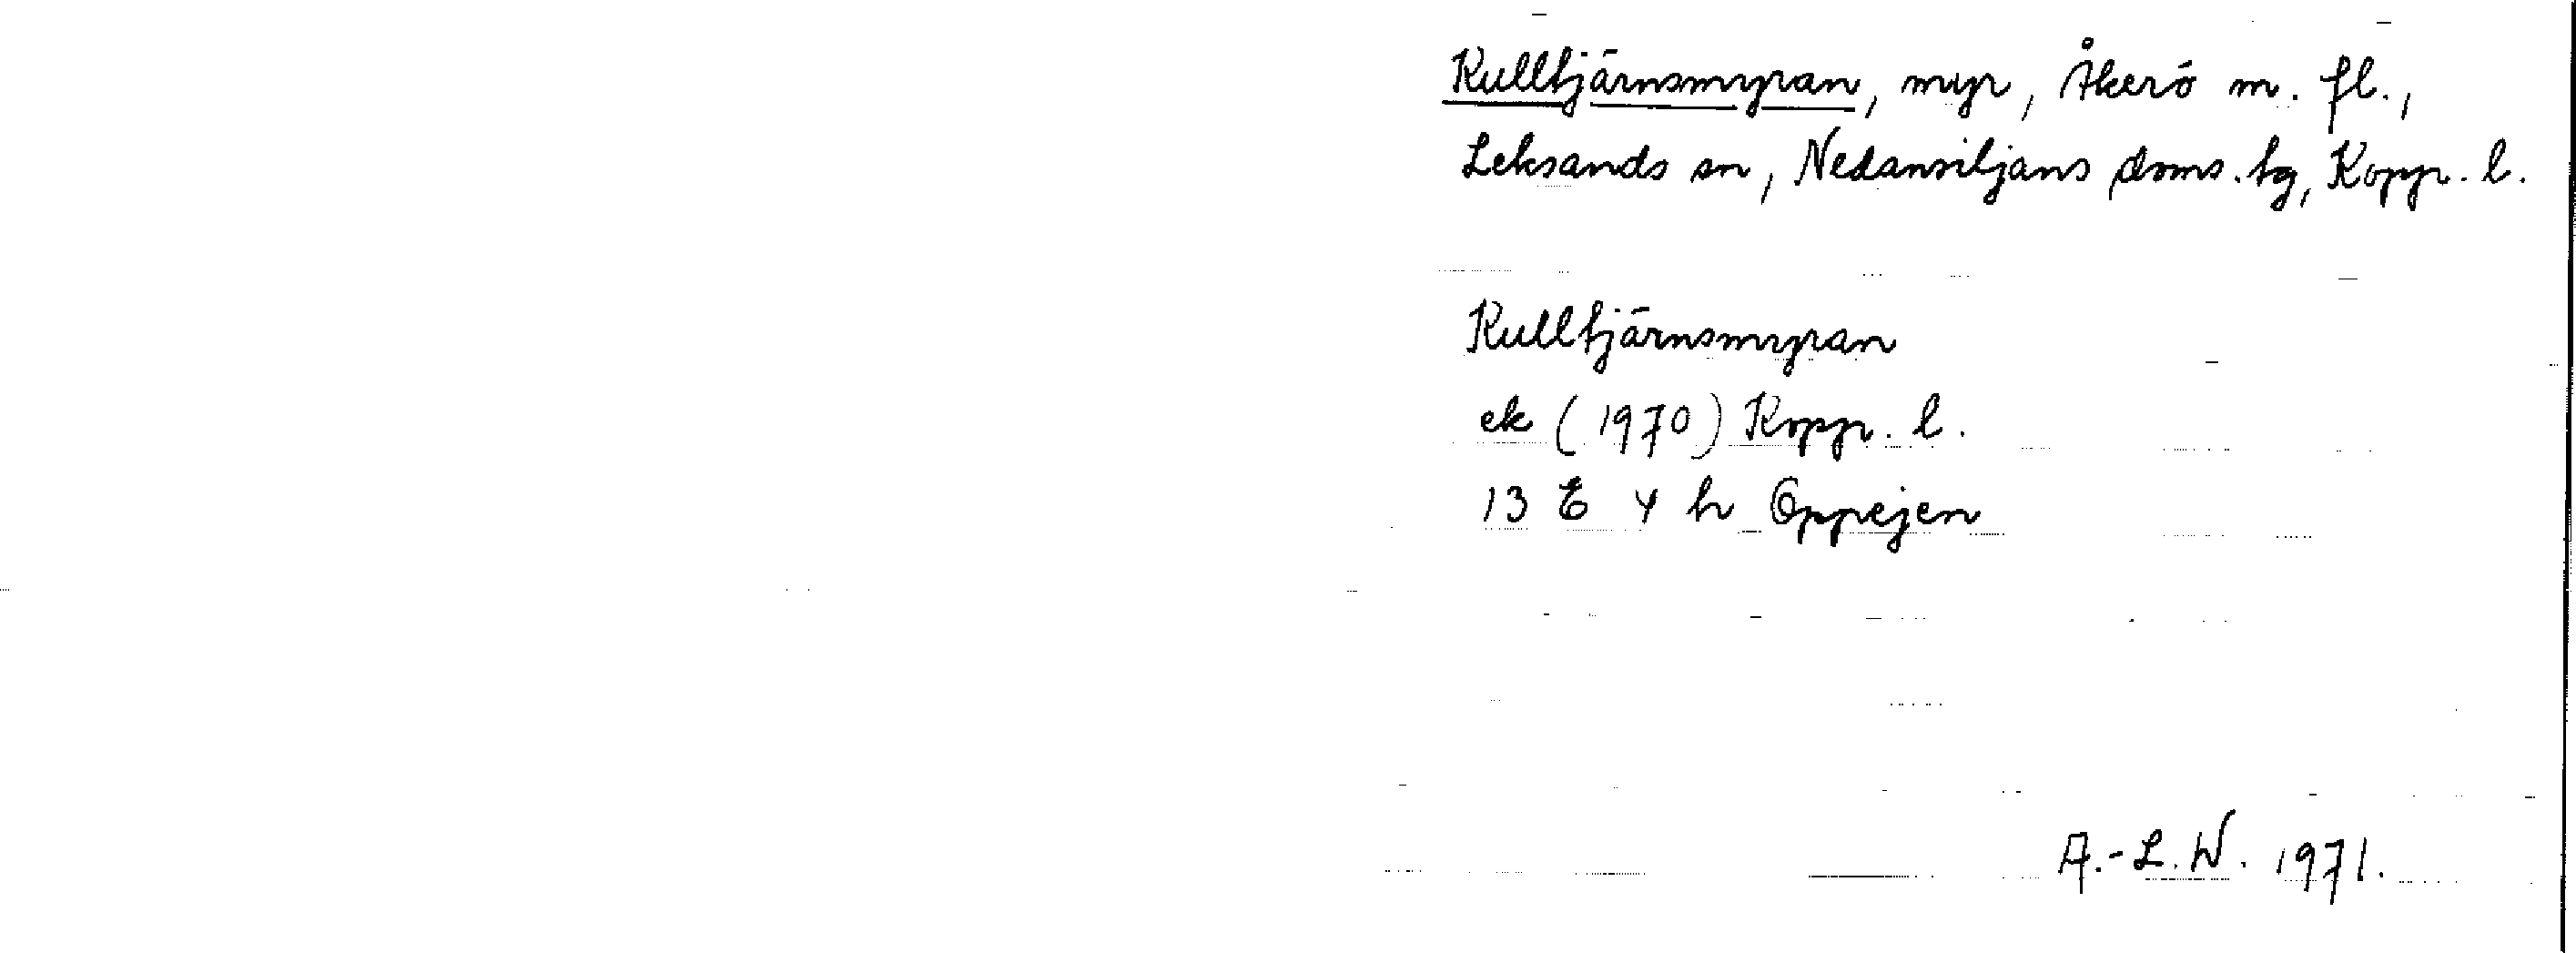 Kulltjärnsmyran, myr, Åkerö m. fl.,
Leksands sn, Nedansiljans doms. tg, Kopp. l.
Kulltjärnsmyran
ek (1970) Kopp. l.
13 E 4 h Oppejen
A.-L.W. 1971.